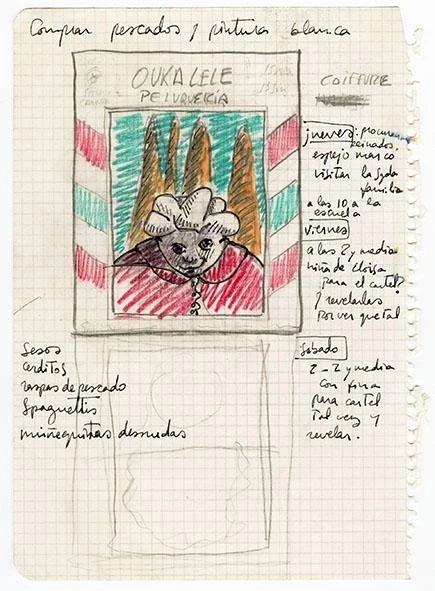 Comprar pescados y pintura blanca
OUKA LELE
PELUQUERÍA
COIFFURE
jueves: procurar
peinados.
espejo marco
visitar la sgda
familia
a las 10 a la
escuela
viernes
a las 2 y media
niña de Eloisa
para el cartel?
y revelarlas
por ver que tal
Sesos
cerditos
raspas de pescado
Spaguettis
muñequitas desnudas
Sabado
2-2 y media
con
para cartel
tal vez y
revelar.